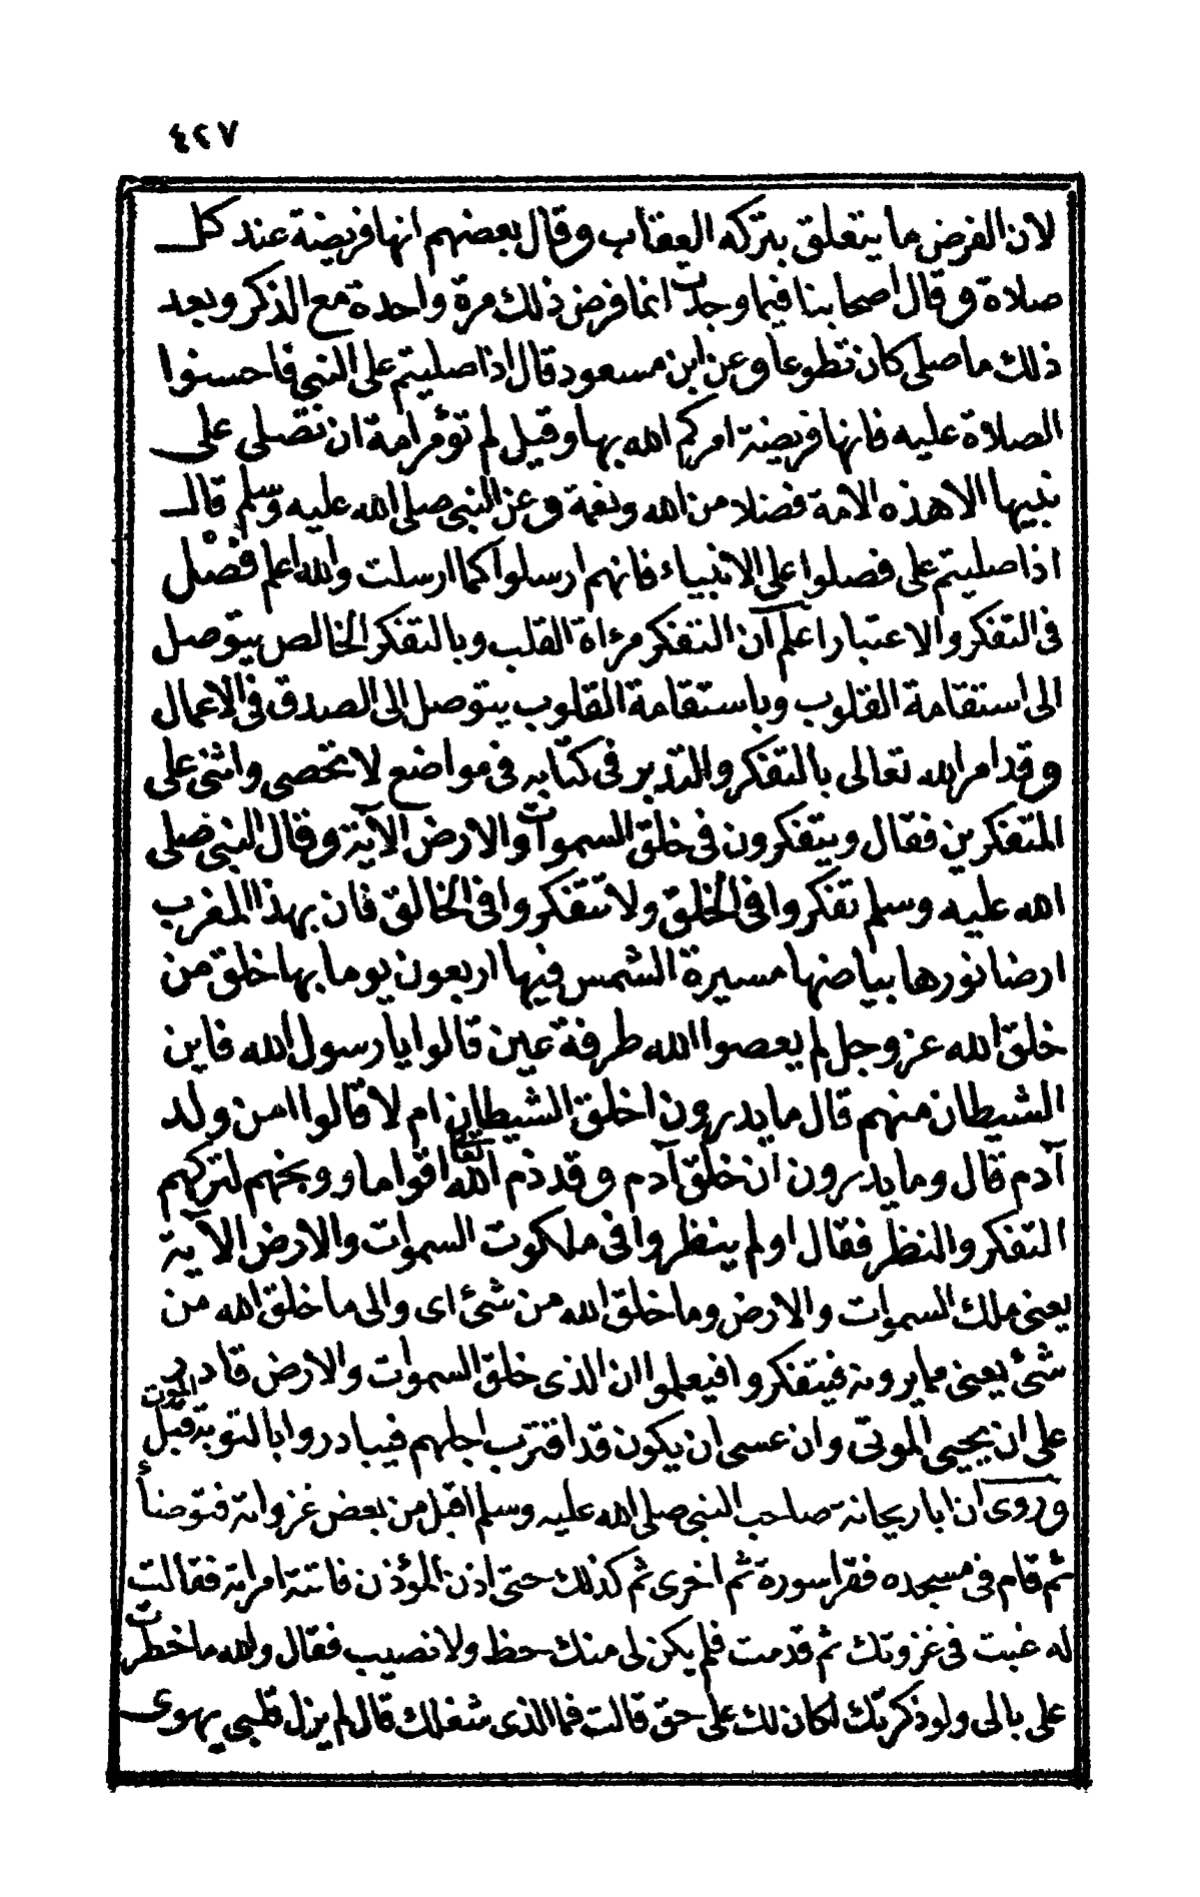 ٤٢٧
لان الفرض ما يتعلق بتركه العقاب وقال بعضهم انها فريضة عند كل
صلاة وقال اصحابنا فيما وجدت انما فرض ذلك مرة واحدة مع الذكر وبعد
ذلك ما صلى كان تطوعا وعن ابن مسعود قال اذا صليتم على النبي فاحسنوا
الصلاة عليه فانها فريضة امركم الله بها وقيل لم تؤمر امة ان تصلى على
نبيها الا هذه الامة فضلا من الله ونعمة وعن النبي صلى الله عليه وسلم قال
اذا صليتم على فصلوا على الانبياء فانهم ارسلوا كما ارسلت والله اعلم فصل
فى التفكر والاعتبار اعلم ان التفكر مرءاة القلب وبالتفكر الخالص يتوصل
الى استقامة القلوب وباستقامة القلوب يتوصل الى الصدق فى الاعمال
وقد امر الله تعالى بالتفكر والتدبر فى كتابه فى مواضع لا تحصى واثنى على
المتفكرين فقال ويتفكرون فى خلق السموات والارض الآية وقال النبي صلى
الله عليه وسلم تفكروا فى الخلق ولا تتفكروا فى الخالق فان بهذا المغرب
ارضا نورها بياضها مسيرة الشمس فيها اربعون يوما بها خلق من
خلق الله عز وجل لم يعصوا الله طرفة عين قالوا يا رسول الله فاين
الشيطان منهم قال ما يدرون اخلق الشيطان ام لا قالوا امن ولد
آدم قال وما يدرون ان خلق آدم وقد ذم الله تعا اقواما ووبخهم لتركهم
التفكر والنظر فقال اولم ينظروا فى ملكوت السموات والارض الآية
يعنى ملك السموات والارض وما خلق الله من شئ اى والى ما خلق الله من
شئ يعنى مما يرونه فيتفكروا فيعلموا ان الذى خلق السموات والارض قادر
على ان يحيى الموتى وان عسى ان يكون قد اقترب اجلهم فيبادروا بالتوبة قبل الموت
وروى ان ابا ريحانة صاحب النبي صلى الله عليه وسلم اقبل من بعض غزواته فتوضأ
ثم قام فى مسجده فقرا سورة ثم اخرى ثم كذلك حتى اذن المؤذن فاتته امراته فقالت
له غبت فى غزوتك ثم قدمت فلم يكن لى منك حظ ولا نصيب فقال والله ما خطرت
على بالى ولو ذكرتك لكان لك على حق قالت فما الذى شغلك قال لم يزل قلبى يهوى